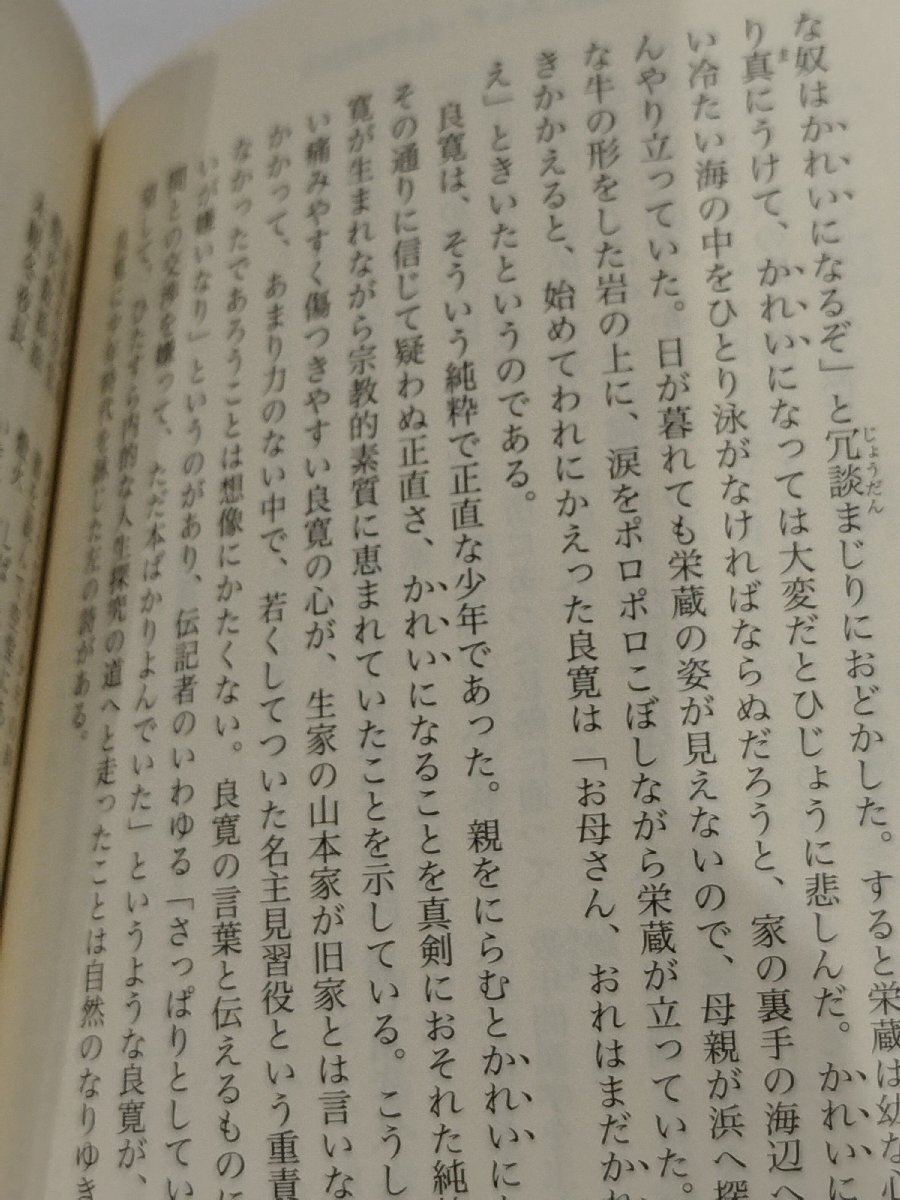 な奴はかれいになるぞ」と冗談まじりにおどかした。すると栄蔵は幼な心
じょうだん
り真にうけて、かれいになっては大変だとひじょうに悲しんだ。かれいに
ま
い冷たい海の中をひとり泳がなければならぬだろうと、家の裏手の海辺へ
んやり立っていた。日が暮れても栄蔵の姿が見えないので、母親が浜へ探
な牛の形をした岩の上に、涙をポロポロこぼしながら栄蔵が立っていた。
きかかえると、始めてわれにかえった良寛は「お母さん、おれはまだかれ
え」ときいたというのである。
良寛は、そういう純粋で正直な少年であった。親をにらむとかれいに
その通りに信じて疑わぬ正直さ、かれいになることを真剣におそれた純
寛が生まれながら宗教的素質に恵まれていたことを示している。こうし
い痛みやすく傷つきやすい良寛の心が、生家の山本家が旧家とは言いな
かかって、あまり力のない中で、若くしてついた名主見習役という重責
なかったであろうことは想像にかたくない。良寛の言葉と伝えるものに
いが嫌いなり」というのがあり、伝記者のいわゆる「さっぱりとしてい
間との交渉を嫌って、ただ本ばかりよんでいた」というような良寛が、
して、ひたすら内的な人生探究の道へと走ったことは自然のなりゆき
少年時代を詠じた左の詩がある。